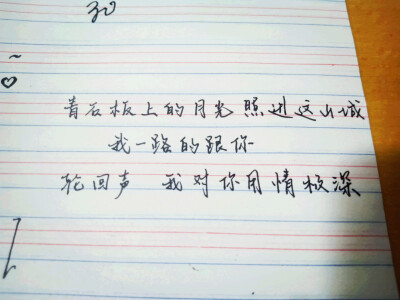 30
~
♡
青石板上的月光照进这山城
我一路的跟你
轮回声 我对你用情极深
[